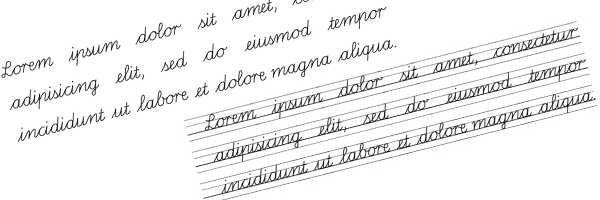 Lorem ipsum dolor sit amet,
adipisicing elit, sed do eiusmod tempor
incididunt ut labore et dolore magna aliqua.
Lorem ipsum dolor sit amet, consectetur
adipisicing elit, sed do eiusmod tempor
incididunt ut labore et dolore magna aliqua.